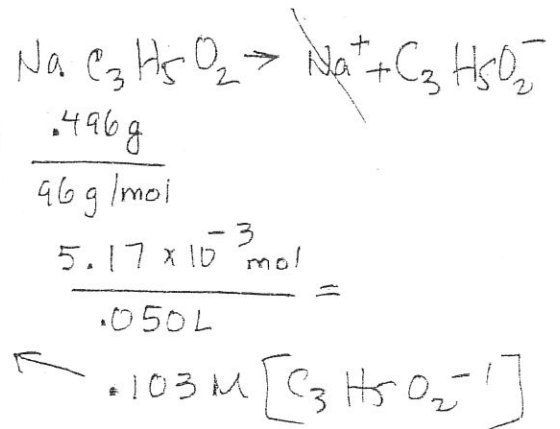 Na C₃H₅O₂ → Na⁺ + C₃H₅O₂⁻
.496g
96 g/mol
5.17 x 10⁻³ mol
.050L =
← .103 M [C₃H₅O₂⁻¹]